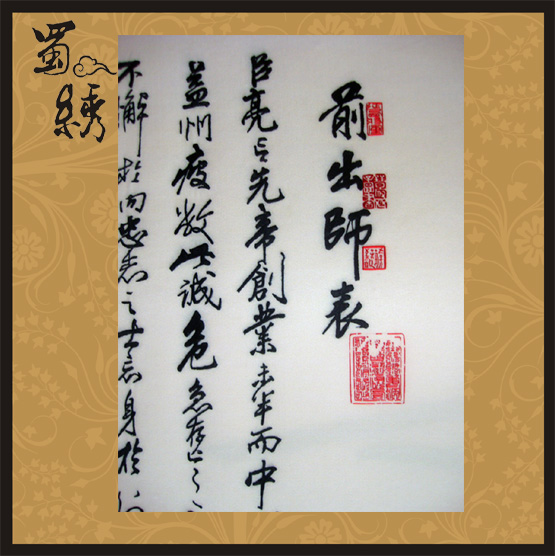 蜀綉
前出師表
臣亮言先帝創業未半而中
益州疲敝此誠危急存亡之
不懈於内忠志之士忘身於